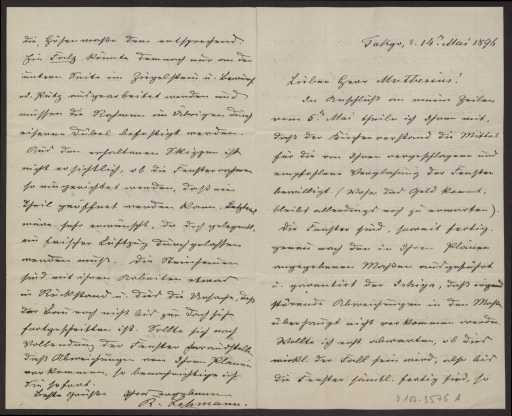 Tokyo, d. 14ten Mai 1896
Lieber Herr Muthesius!
Im Anschluß an meine Zeilen
vom 6ten Mai theile ich Ihnen mit,
daß der Kirchenvorstand die Mittel
für die von Ihnen vorgeschlagene und
empfohlene Verglasung der Fenster
bewilligt (woher das Geld kommt,
bleibt allerdings noch zu erwarten).
Die Fenster sind, soweit fertig,
genau nach den in Ihren Plänen
angegebenen Maßen ausgeführt
u. garantirt der daß irgend
störende Abweichungen in den Maßen
überhaupt nicht vorkommen werden.
Wollte ich erst abwarten, ob dies
wirkl. der Fall sein wird, also bis
die Fenster sämtl. fertig sind, so
die Höhenmaße dem entsprechend.
Ein Falz könnte demnach nur an der
untern Seite im Ziegelstein u.
od. Putz ausgearbeitet werden und
müssen die Rahmen im Übrigen durch
eiserne Dübel befestigt werden.
Aus den erhaltenen Skizzen ist
nicht ersichtlich, ob die Fensterrahmen
so eingerichtet werden, daß ein
Theil geöffnet werden kann. Letzteres
wäre sehr erwünscht, da doch gelegentl.
ein frischer Luftzug durchgelassen
werden muß. Die Steinhauer
sind mit ihren Arbeiten etwas
in Rückstand u. dies die Ursache, daß
der Bau noch nicht bis zur Dachhöhe
fortgeschritten ist. Sollte sich nach
Vollendung der Fenster herausstellen,
daß Abweichungen von Ihren Plänen
vorkommen, so benachrichtige ich
Sie sofort.
Beste Grüße Ihr ergebener
R. Lehmann.